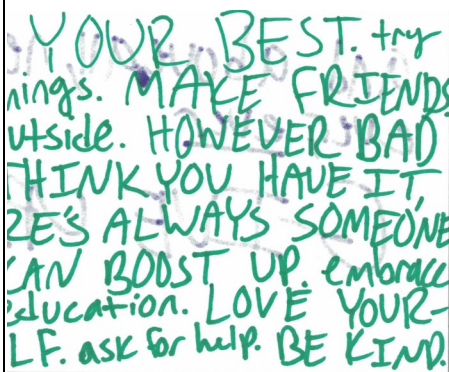 YOUR BEST. try
nings. MAKE FRIENDS
utside. HOWEVER BAD
THINK YOU HAVE IT,
RE'S ALWAYS SOMEONE
CAN BOOST UP. embrace
education. LOVE YOUR-
LF. ask for help. BE KIND.